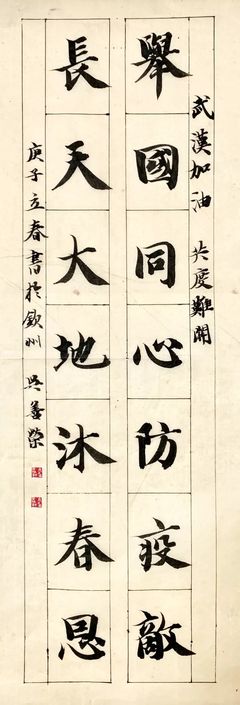 武漢加油 共度難關
舉國同心防疫敵
長天大地沐春恩
庚子立春書於欽州 吳善榮